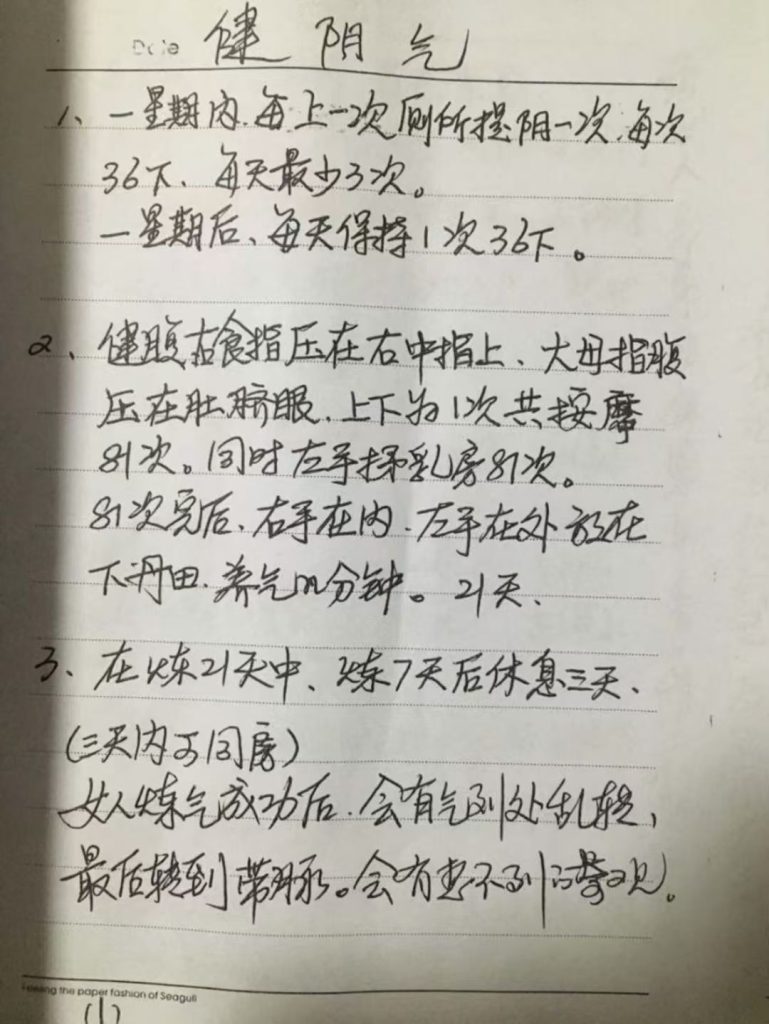 Date 健阴气
1、一星期内、每上一次厕所提阴一次、每次
36下、每天最少3次。
一星期后、每天保持1次36下。
2、健腹右食指压在右中指上、大母指腹
压在肚脐眼、上下为1次共按摩
81次。同时左手揉乳房81次。
81次完后、右手在内、左手在外放在
下丹田、养气 分钟。21天、
3、在炼21天中、炼7天后休息三天、
(三天内可同房)
女人炼气成功后、会有气到处乱转、
最后转到带脉。会有想不到 观。
the paper fashion of Seagull
(1)